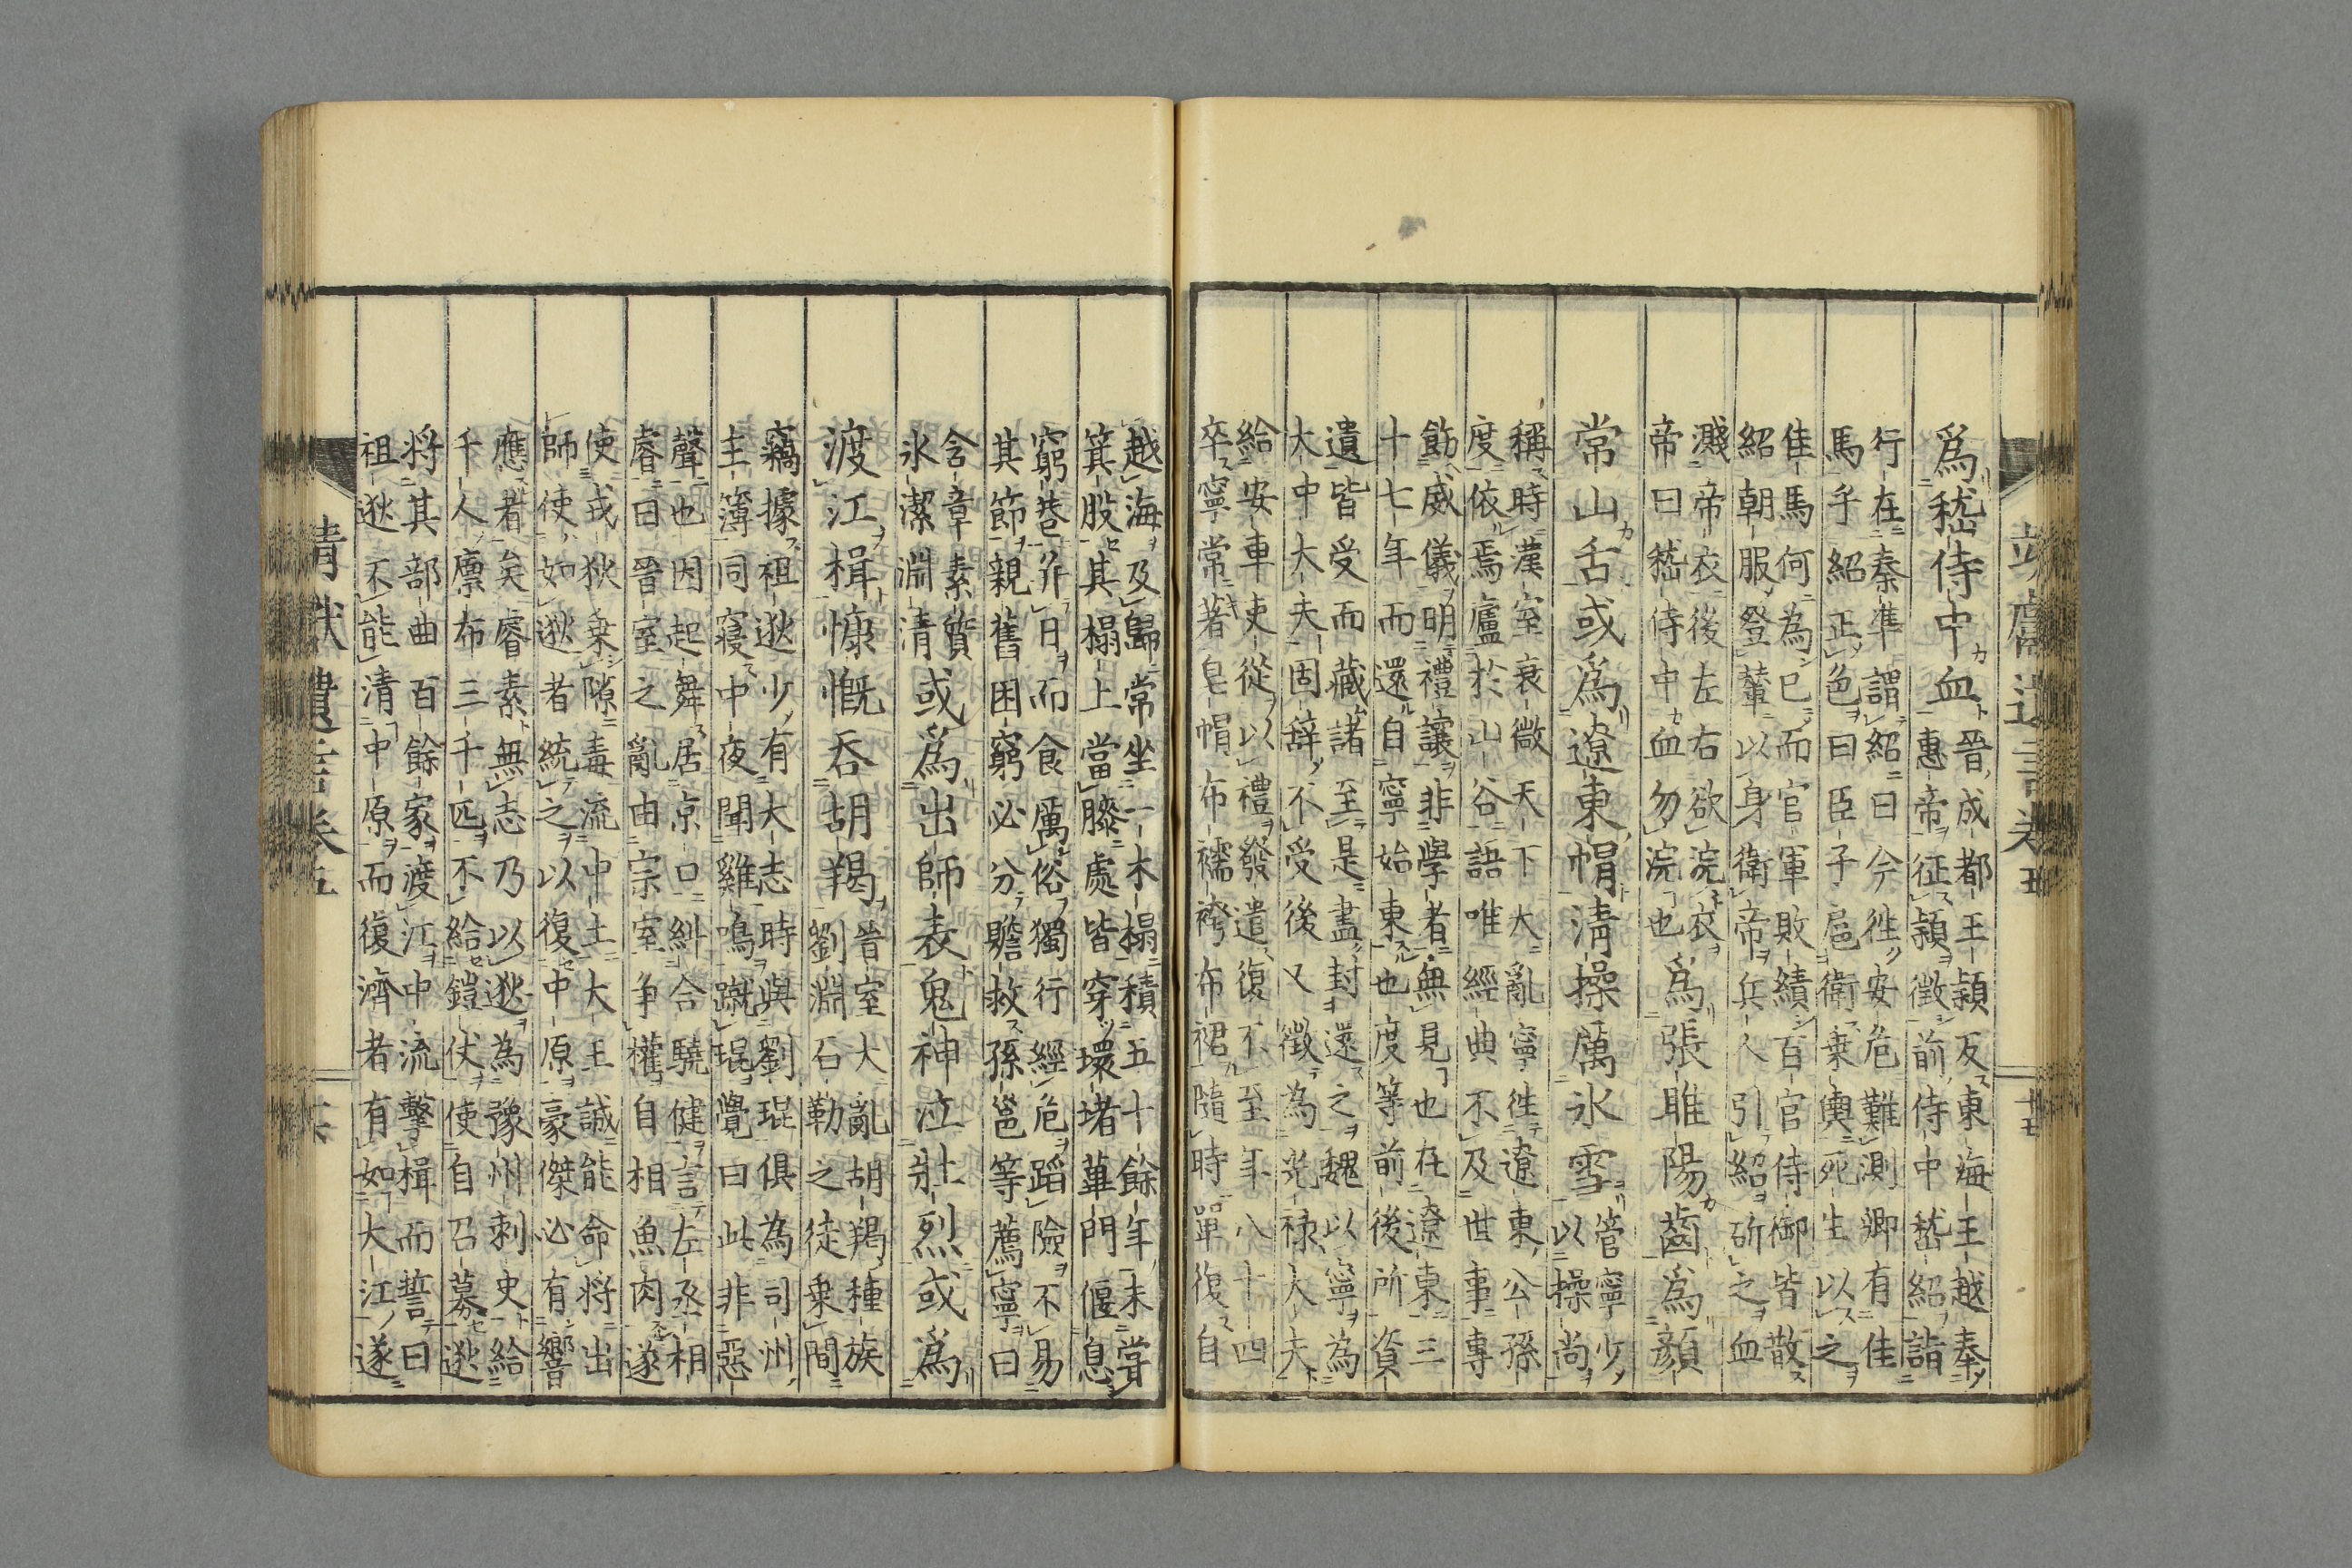 爲嵇侍中血
晉成都王頴反東海王越奉
惠帝征頴徵前侍中嵇紹詣
行在秦準謂紹曰今徃安危難測卿有佳
馬乎紹正色曰臣子扈衛乗輿死生以之
佳馬何為已而官軍敗績百官侍御皆散
紹朝服登輦以身衛帝兵人引紹斫之血
濺帝衣後左右欲浣衣
帝曰嵇侍中血勿浣也
爲張睢陽齒爲顏
常山舌或爲遼東帽清操厲氷雪
管寧少
以操尚
稱時漢室衰微天下大亂寧徃遼東公孫
度依焉廬於山谷語唯經典不及世事專
飭威儀明禮讓非學者無見也在遼東三
十七年而還自寧始東也度等前後所資
遺皆受而藏諸至是盡封還之魏以寧為
大中大夫固辭不受後又徵為光禄大夫
給安車吏從以禮發遣復不至年八十四
卒寧常著皂帽布襦袴布裙隨時單復自
越海及歸常坐一木榻積五十餘年未嘗
箕股其榻上當膝處皆穿環堵蓽門偃息
窮巷并日而食厲俗獨行經危蹈險不易
其節親舊困窮必分贍救孫邕等薦寧曰
含章素質
氷潔淵清
或爲出師表鬼神泣壯烈或爲
渡江楫慷慨吞胡羯
晉室大亂胡羯種族
劉淵石勒之徒乗間
竊據祖逖少有大志時與劉琨俱為司州
主簿同寢中夜聞雞鳴蹴琨覺曰此非惡
聲也因起舞居京口糾合驍健言左丞相
睿曰晉室之亂由宗室爭權自相魚肉遂
使戎狄乗隙毒流中土大王誠能命將出
師使如逖者統之以復中原豪傑必有響
應者矣睿素無志乃以逖為豫州刺史給
千人廪布三千匹不給鎧仗使自召募逖
将其部曲百餘家渡江中流擊楫而誓曰
祖逖不能清中原而復濟者有如大江遂
靖獻遺言卷五